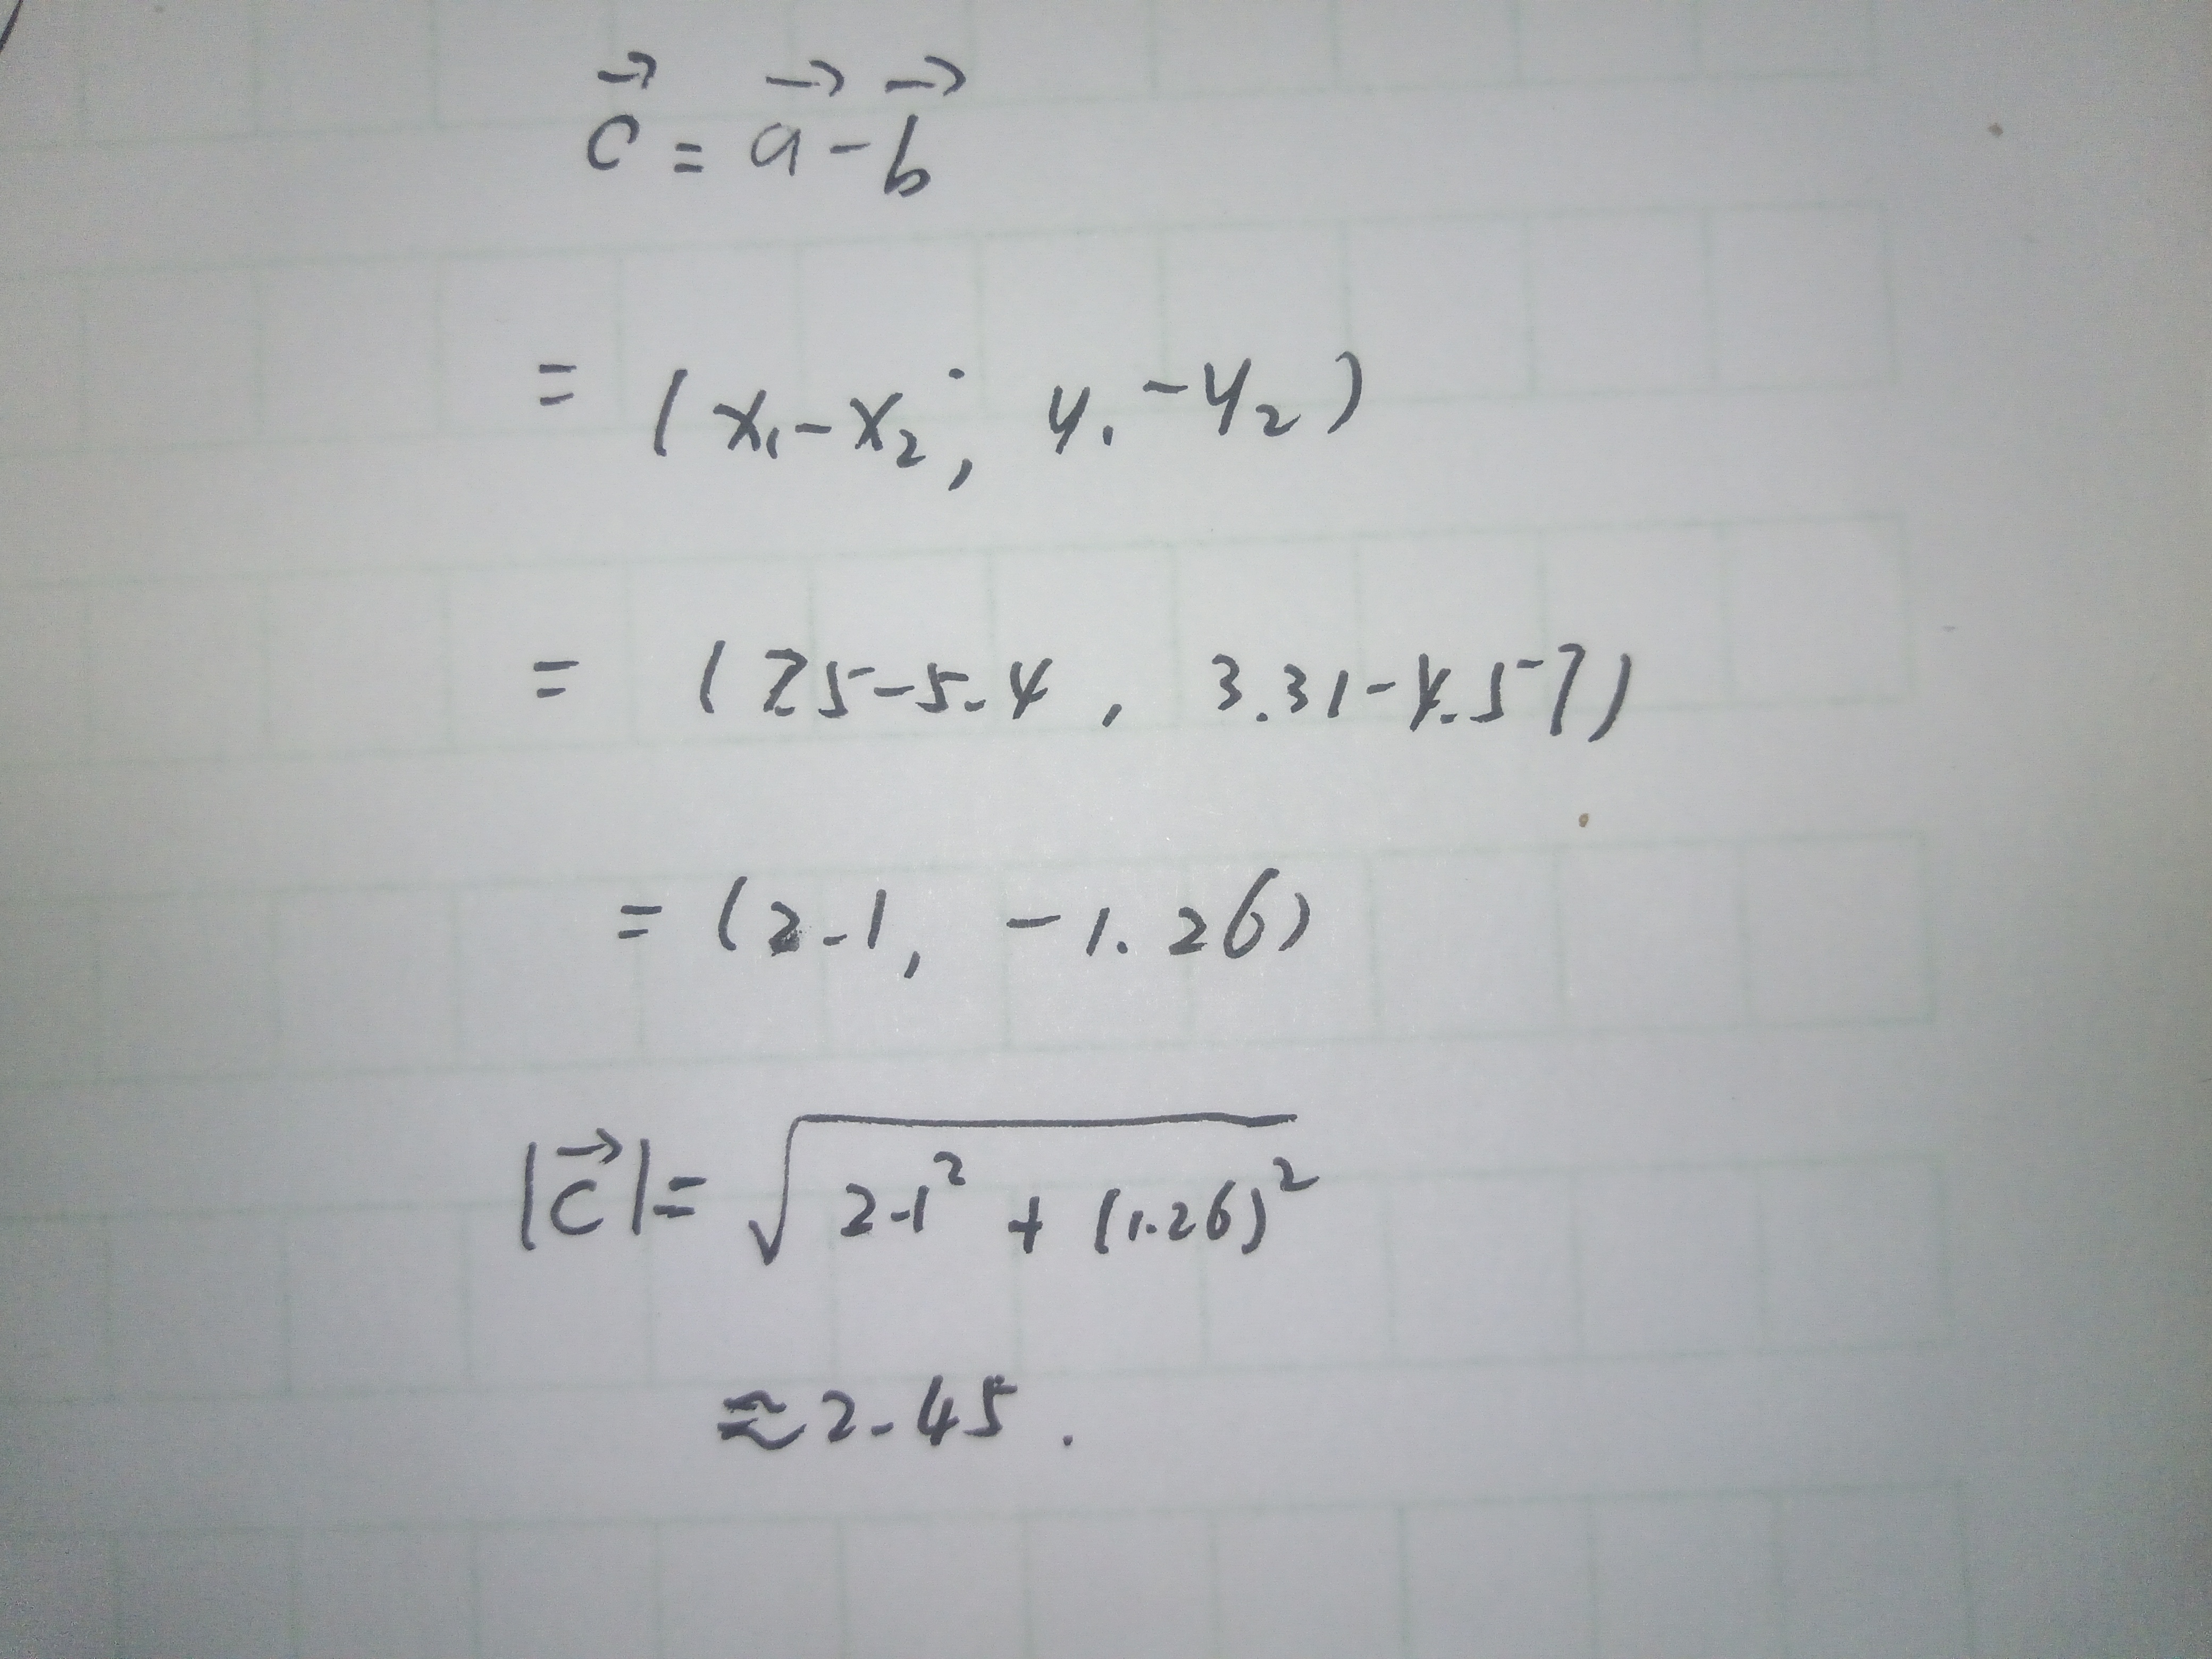 $\vec{c} = \vec{a} - \vec{b}$
$= (x_1 - x_2, y_1 - y_2)$
$= (7.5 - 5.4, 3.31 - 4.57)$
$= (2.1, -1.26)$
$|\vec{c}| = \sqrt{2.1^2 + (1.26)^2}$
$\approx 2.45.$